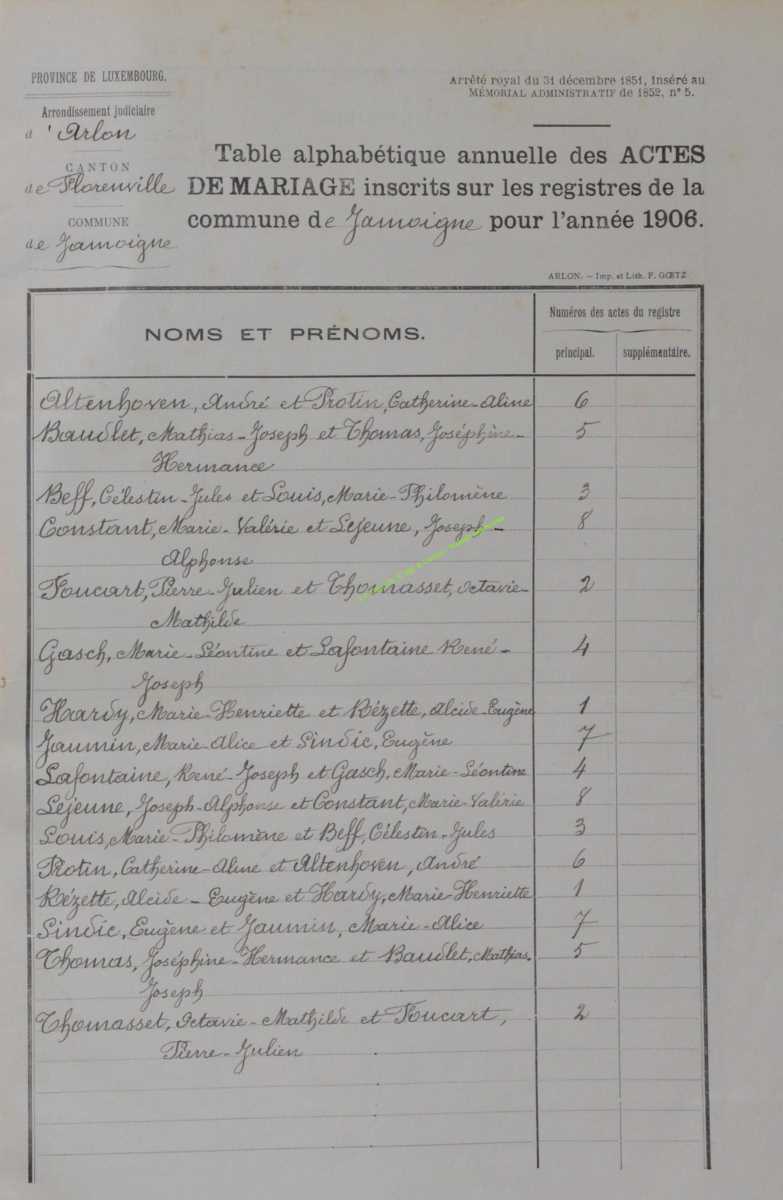 PROVINCE DE LUXEMBOURG.
Arrondissement judiciaire
d'Arlon
CANTON
de Florenville
COMMUNE
de Jamoigne
Arrêté royal du 31 décembre 1851, inséré au
MÉMORIAL ADMINISTRATIF de 1852, n° 5.
Table alphabétique annuelle des ACTES
DE MARIAGE inscrits sur les registres de la
commune de Jamoigne pour l'année 1906.
ARLON. — Imp. et Lith. F. GŒTZ
NOMS ET PRÉNOMS.
Numéros des actes du registre
principal. supplémentaire.
Altenhoven, André et Protin, Catherine-Aline 6
Baudlet, Mathias-Joseph et Thomas, Joséphine- 5
Hermance
Beff, Célestin-Jules et Louis, Marie-Philomène 3
Constant, Marie-Valérie et Lejeune, Joseph- 8
Alphonse
Foucart, Pierre-Julien et Thomasset, Octavie- 2
Mathilde
Gasch, Marie-Léontine et Lafontaine René- 4
Joseph
Hardy, Marie-Henriette et Rézette, Alcide-Eugène 1
Jaumin, Marie-Alice et Sindic, Eugène 7
Lafontaine, René-Joseph et Gasch, Marie-Léontine 4
Lejeune, Joseph-Alphonse et Constant, Marie-Valérie 8
Louis, Marie-Philomène et Beff, Célestin-Jules 3
Protin, Catherine-Aline et Altenhoven, André 6
Rézette, Alcide-Eugène et Hardy, Marie-Henriette 1
Sindic, Eugène et Jaumin, Marie-Alice 7
Thomas, Joséphine-Hermance et Baudlet, Mathias- 5
Joseph
Thomasset, Octavie-Mathilde et Foucart, 2
Pierre-Julien